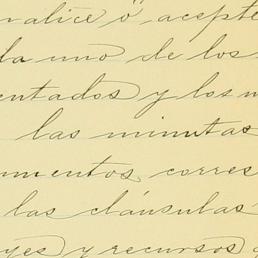 ralice ó acepte
la uno de los
entados y los
las minutas
umentos corres
las cláusulas
yes y recursos